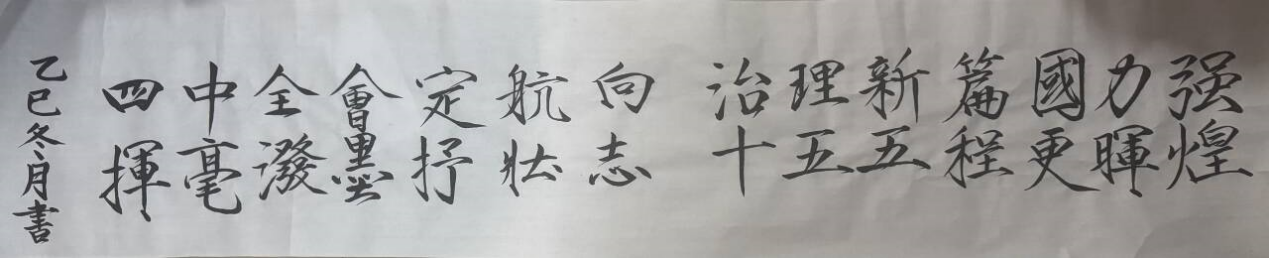 四中全會定航向 治理新篇國力强
揮毫潑墨抒壯志 十五五程更暉煌
乙巳冬月書